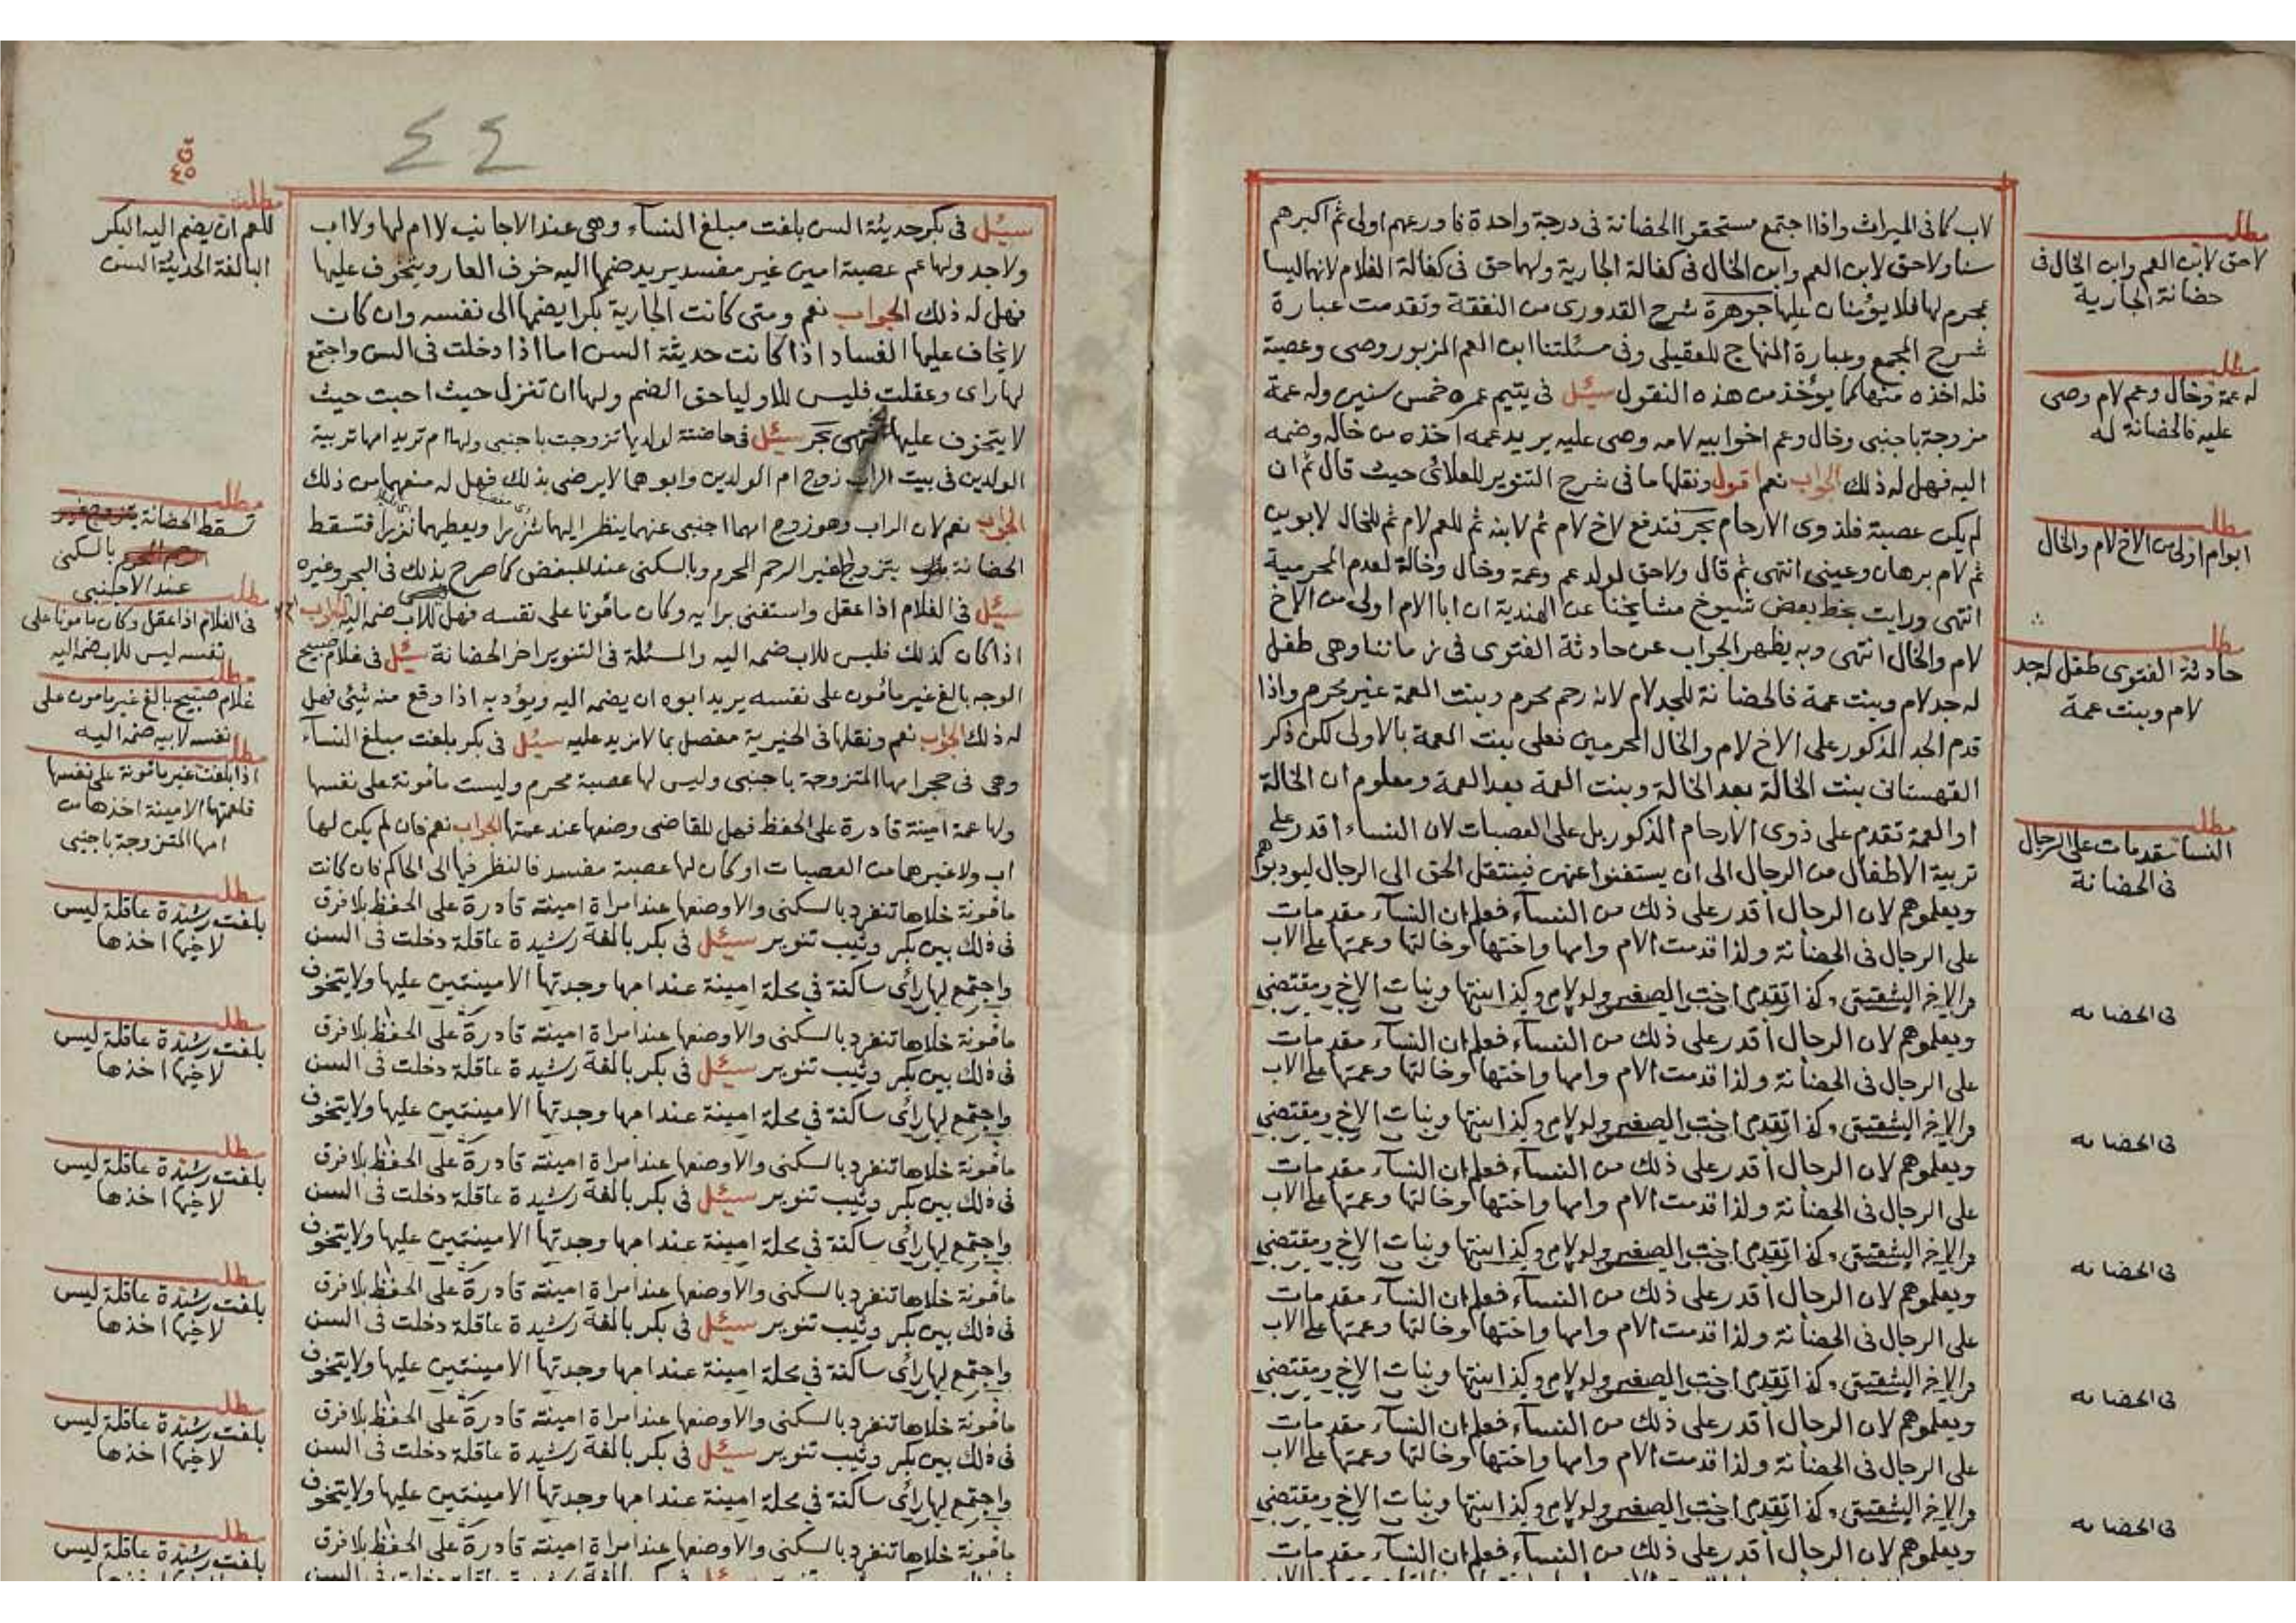 لاب كما فى الميراث واذا اجتمع مستحقوا الحضانة فى درجة واحدة فاورعهم اولى ثم اكبرهم
سنا ولاحق لابن العم وابن الخال فى كفالة الجارية ولهما حق فى كفالة الغلام لانهما ليسا
بمحرم لها فلا يؤمنان عليها جوهرة شرح القدورى من النفقة وتقدمت عبارة
شرح المجمع وعبارة المنهاج للعقيلى وفى مسئلتنا ابن العم المزبور وصى وعصبة
فله اخذه منها كما يؤخذ من هذه النقول سئل فى يتيم عمره خمس سنين وله عمة
مزوجة باجنبى وخال وعم اخوا بيه لامه وصى عليه يريد عمه اخذه من خاله وضمه
اليه فهل له ذلك الجواب نعم اقول ونقلها ما فى شرح التنوير للعلائى حيث قال ثم ان
لم يكن عصبة فلذوى الارحام بحر فتدفع لاخ لام ثم لابنه ثم للعم لام ثم للخال لابوين
ثم لام برهان وعينى انتهى ثم قال ولاحق لولد عم وعمة وخال وخالة لعدم المحرمية
انتهى ورايت بخط بعض شيوخ مشايخنا عن الهندية ان ابا الام اولى من الاخ
لام والخال انتهى وبه يظهر الجواب عن حادثة الفتوى فى زماننا وهى طفل
له جد لام وبنت عمة فالحضانة للجد لام لانه رحم محرم وبنت العمة غير محرم واذا
قدم الجد المذكور على الاخ لام والخال المحرمين فعلى بنت العمة بالاولى لكن ذكر
القهستانى بنت الخالة بعد الخالة وبنت العمة بعد العمة ومعلوم ان الخالة
او العمة تقدم على ذوى الارحام الذكور بل على العصبات لان النساء اقدر على
تربية الاطفال من الرجال الى ان يستغنوا عنهن فينتقل الحق الى الرجال ليودبوهم
ويعلموهم لان الرجال أقدر على ذلك من النساء فعلم ان النساء مقدمات
على الرجال فى الحضانة ولذا قدمت الام وامها واختها وخالتها وعمتها على الاب
والاخ الشقيق وكذا تقدم اخت الصغير ولو لام وكذا ابنتها وبنات الاخ ومقتضى
ويعلموهم لان الرجال أقدر على ذلك من النساء فعلم ان النساء مقدمات
على الرجال فى الحضانة ولذا قدمت الام وامها واختها وخالتها وعمتها على الاب
والاخ الشقيق وكذا تقدم اخت الصغير ولو لام وكذا ابنتها وبنات الاخ ومقتضى
ويعلموهم لان الرجال أقدر على ذلك من النساء فعلم ان النساء مقدمات
على الرجال فى الحضانة ولذا قدمت الام وامها واختها وخالتها وعمتها على الاب
والاخ الشقيق وكذا تقدم اخت الصغير ولو لام وكذا ابنتها وبنات الاخ ومقتضى
ويعلموهم لان الرجال أقدر على ذلك من النساء فعلم ان النساء مقدمات
على الرجال فى الحضانة ولذا قدمت الام وامها واختها وخالتها وعمتها على الاب
والاخ الشقيق وكذا تقدم اخت الصغير ولو لام وكذا ابنتها وبنات الاخ ومقتضى
ويعلموهم لان الرجال أقدر على ذلك من النساء فعلم ان النساء مقدمات
على الرجال فى الحضانة ولذا قدمت الام وامها واختها وخالتها وعمتها على الاب
والاخ الشقيق وكذا تقدم اخت الصغير ولو لام وكذا ابنتها وبنات الاخ ومقتضى
ويعلموهم لان الرجال أقدر على ذلك من النساء فعلم ان النساء مقدمات
مطلب
لاحق لابن العم وابن الخال فى
حضانة الجارية
مطلب
له عمة وخال وعم لام وصى
عليه فالحضانة له
مطلب
ابو ام اولى من الاخ لام والخال
مطلب
حادثة الفتوى طفل له جد
لام وبنت عمة
مطلب
النسا مقدمات على الرجال
فى الحضانة
فى الحضانه
فى الحضانه
فى الحضانه
فى الحضانه
فى الحضانه
٤٤
٤٥
سئل فى بكر حديثة السن بلغت مبلغ النساء وهى عند الاجانب لا ام لها ولا اب
ولا جد ولها عم عصبة امين غير مفسد يريد ضمها اليه خوف العار ويتخوف عليها
فهل له ذلك الجواب نعم ومتى كانت الجارية بكرا يضمها الى نفسه وان كان
لا يخاف عليها الفساد اذا كانت حديثة السن اما اذا دخلت فى السن واجتمع
لها راى وعقلت فليس للاوليا حق الضم ولها ان تنزل حيث احبت حيث
لا يتخوف عليها انتهى بحر سئل فى حاضنة لولديها تزوجت باجنبى ولها ام تريد امها تربية
الولدين فى بيت الراب زوج ام الولدين وابوهما لا يرضى بذلك فهل له منعهما من ذلك
الجواب نعم لان الراب وهو زوج امهما اجنبى عنهما ينظر اليهما شزرا ويعطيهما نذرا فتسقط
الحضانة بتزوج غير الرحم المحرم وبالسكنى عند المبغض كما صرح بذلك فى البحر وغيره
سئل فى الغلام اذا عقل واستغنى برايه وكان مأمونا على نفسه فهل للاب ضمه اليه الجواب
اذا كان كذلك فليس للاب ضمه اليه والمسئلة فى التنوير اخر الحضانة سئل فى غلام صبيح
الوجه بالغ غير مأمون على نفسه يريد ابوه ان يضمه اليه ويؤدبه اذا وقع منه شيئى فهل
له ذلك الجواب نعم ونقلها فى الخيرية مفصل بما لامزيد عليه سئل فى بكر بلغت مبلغ النساء
وهى فى حجر امها المتزوجة باجنبى وليس لها عصبة محرم وليست مأمونة على نفسها
ولها عمة امينة قادرة على الحفظ فهل للقاضى وضعها عند عمتها الجواب نعم فان لم يكن لها
اب ولا غيرهما من العصبات او كان لها عصبة مفسد فالنظر فيها الى الحاكم فان كانت
مأمونة خلاها تنفرد بالسكنى والا وضعها عند امراة امينة قادرة على الحفظ بلا فرق
فى ذلك بين بكر وثيب تنوير سئل فى بكر بالغة رشيدة عاقلة دخلت فى السن
واجتمع لها رأى ساكنة فى محلة امينة عند امها وجدتها الامينتين عليها ولا يتخوف
مأمونة خلاها تنفرد بالسكنى والا وضعها عند امراة امينة قادرة على الحفظ بلا فرق
فى ذلك بين بكر وثيب تنوير سئل فى بكر بالغة رشيدة عاقلة دخلت فى السن
واجتمع لها رأى ساكنة فى محلة امينة عند امها وجدتها الامينتين عليها ولا يتخوف
مأمونة خلاها تنفرد بالسكنى والا وضعها عند امراة امينة قادرة على الحفظ بلا فرق
فى ذلك بين بكر وثيب تنوير سئل فى بكر بالغة رشيدة عاقلة دخلت فى السن
واجتمع لها رأى ساكنة فى محلة امينة عند امها وجدتها الامينتين عليها ولا يتخوف
مأمونة خلاها تنفرد بالسكنى والا وضعها عند امراة امينة قادرة على الحفظ بلا فرق
فى ذلك بين بكر وثيب تنوير سئل فى بكر بالغة رشيدة عاقلة دخلت فى السن
واجتمع لها رأى ساكنة فى محلة امينة عند امها وجدتها الامينتين عليها ولا يتخوف
مأمونة خلاها تنفرد بالسكنى والا وضعها عند امراة امينة قادرة على الحفظ بلا فرق
فى ذلك بين بكر وثيب تنوير سئل فى بكر بالغة رشيدة عاقلة دخلت فى السن
واجتمع لها رأى ساكنة فى محلة امينة عند امها وجدتها الامينتين عليها ولا يتخوف
مأمونة خلاها تنفرد بالسكنى والا وضعها عند امراة امينة قادرة على الحفظ بلا فرق
مطلب
للعم ان يضم اليه البكر
البالغة الحديثة السن
مطلب
تسقط الحضانة بتزوج غير
الرحم المحرم بالسكنى
عند الاجنبى
مطلب
فى الغلام اذا عقل وكان مامونا على
نفسه ليس للاب ضمه اليه
مطلب
غلام صبيح بالغ غير مامون على
نفسه لابيه ضمه اليه
مطلب
اذا بلغت غير مأمونة على نفسها
فلعمتها الامينة اخذها من
امها المتزوجة باجنبى
مطلب
بلغت رشيدة عاقلة ليس
لاخيها اخذها
مطلب
بلغت رشيدة عاقلة ليس
لاخيها اخذها
مطلب
بلغت رشيدة عاقلة ليس
لاخيها اخذها
مطلب
بلغت رشيدة عاقلة ليس
لاخيها اخذها
مطلب
بلغت رشيدة عاقلة ليس
لاخيها اخذها
مطلب
بلغت رشيدة عاقلة ليس